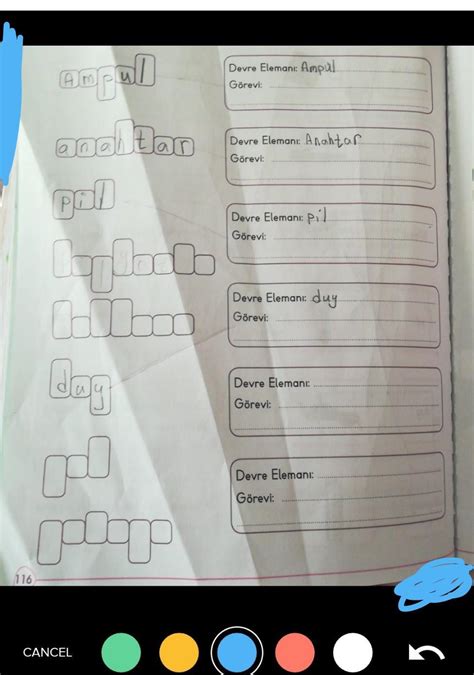 Ampul
Devre Elemanı: Ampül
Görevi:
anahtar
Devre Elemanı: Anahtar
Görevi:
pil
Devre Elemanı: pil
Görevi:
Devre Elemanı: duy
Görevi:
duy
Devre Elemanı:
Görevi:
Devre Elemanı:
Görevi:
116
CANCEL